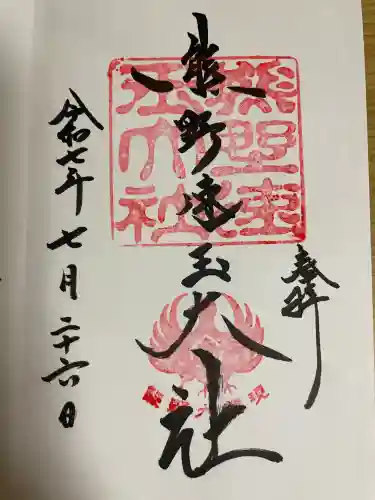 奉拝
熊野速玉大社
令和七年七月二十六日
熊野速玉大社